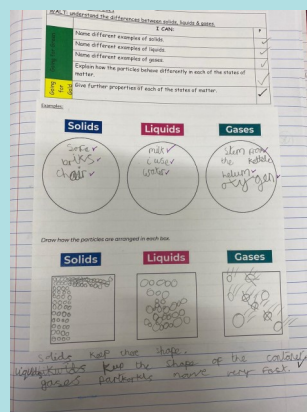 WALT: understand the differences between solids, liquids & gases.
I CAN:
Name different examples of solids.
Name different examples of liquids.
Name different examples of gases.
Explain how the particles behave differently in each of the states of matter.
Going for Gold
Give further properties of each of the states of matter.
Examples:
Solids
Liquids
Gases
sofer
briks
chair
milk
water
the kettele
helium
oxygen
Draw how the particles are arranged in each box.
Solids
Liquids
Gases
Solids keep thar shape.
keep the shape of the container
gases move very fast.